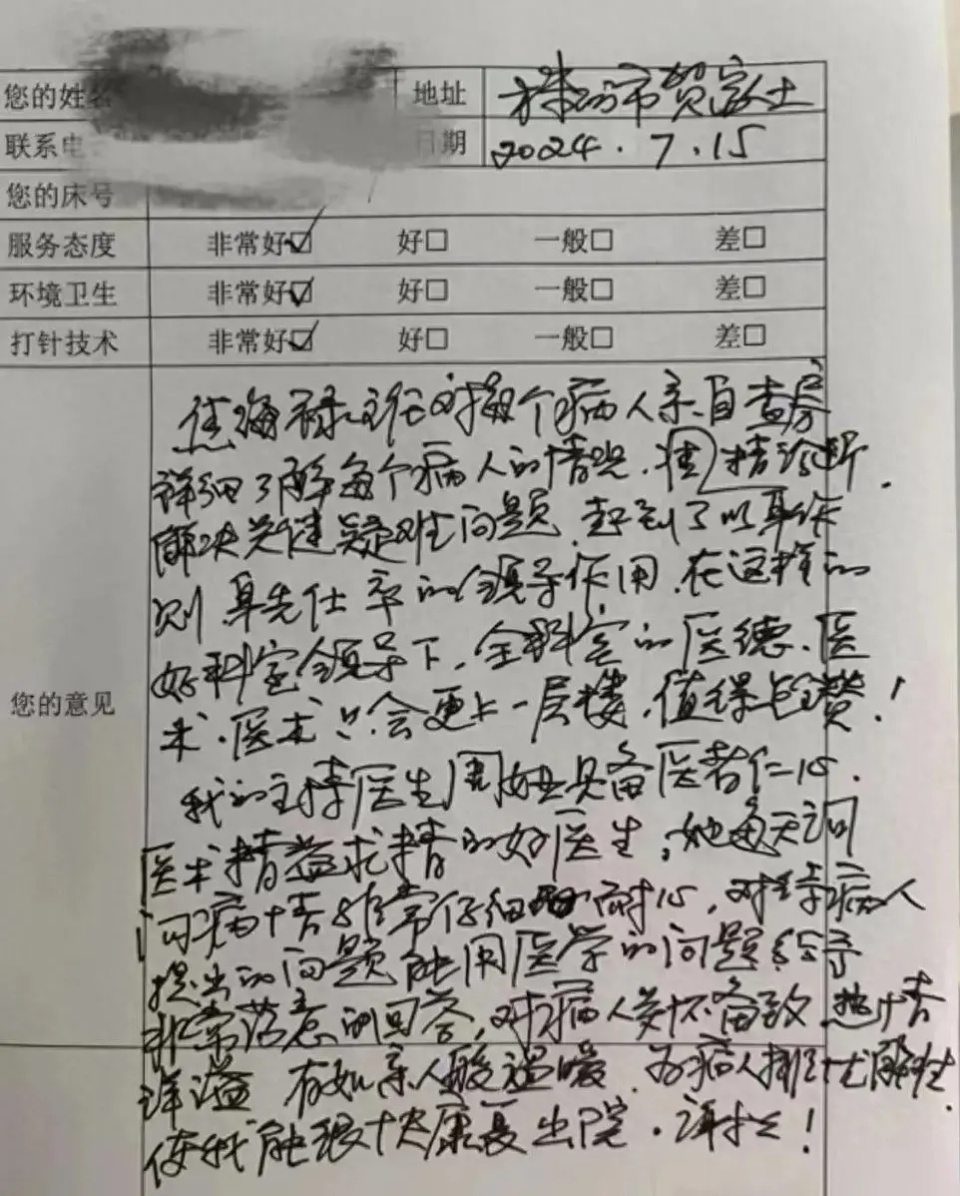 您的姓名 地址 株洲市贺家土
联系电 日期 2024.7.15
您的床号
服务态度 非常好☑ 好□ 一般□ 差□
环境卫生 非常好☑ 好□ 一般□ 差□
打针技术 非常好☑ 好□ 一般□ 差□
您的意见
焦海禄主任对每个病人亲自查房
详细了解每个病人的情况.精诊断.
解决关键疑难性问题.起到了以身作
则身先仕卒的领导作用.在这样的
好科室领导下,全科室的医德、医
术.医术只会更上一层楼,值得点赞!
我的主持医生周 具备医者仁心.
医术精益求精的好医生,她每天询
问病情非常仔细耐心,对每病人
提出的问题能用医学的问题给予
非常满意的回答,对病人关怀备致 热情
洋溢 有如亲人般温暖.为病人排忧解
使我能很快康复出院.谢谢!